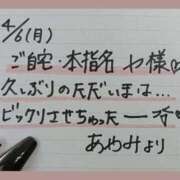 4/6(月)
ご自宅・本指名 や様
久しぶりのただいまは...
ビックリさせちゃったー
あやみより